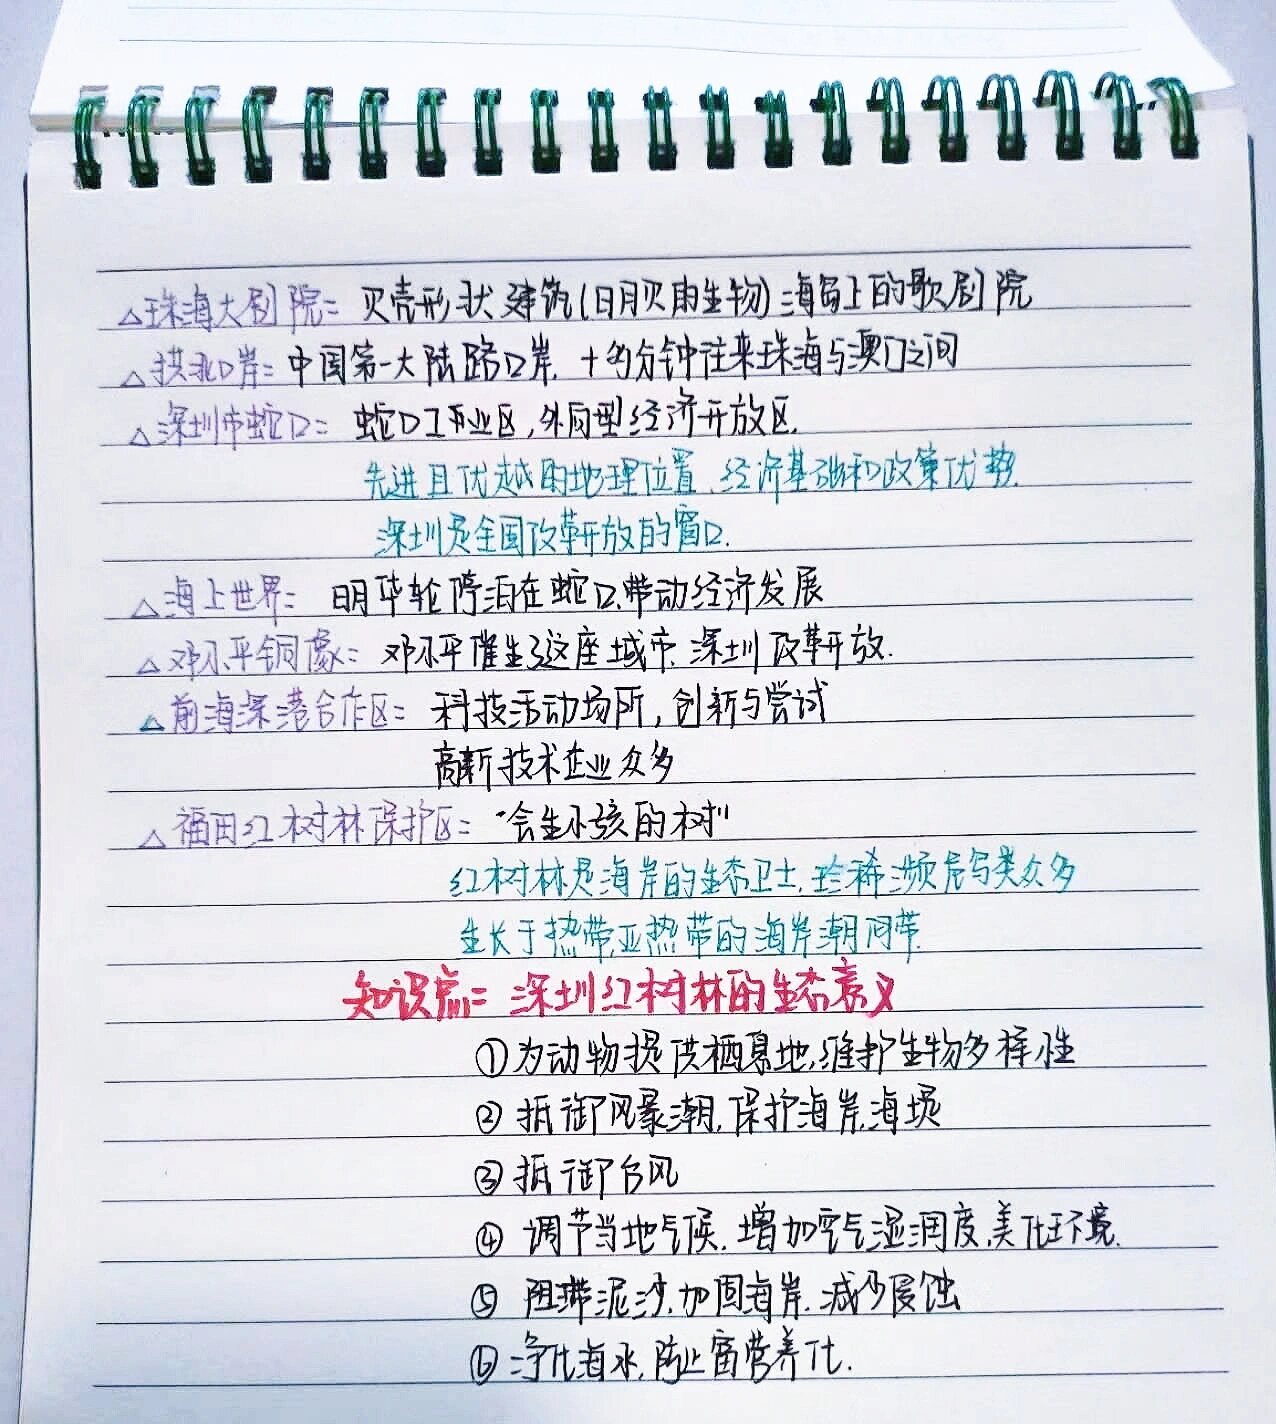 △珠海大剧院: 贝壳形状建筑(日月贝海生物)海岛上的歌剧院
△拱北口岸: 中国第一大陆路口岸, 十多分钟往来珠海与澳门之间
△深圳市蛇口: 蛇口工业区,外向型经济开放区.
先进且优越的地理位置、经济基础和政策优势.
深圳是全国改革开放的窗口.
△海上世界: 明华轮停泊在蛇口,带动经济发展
△邓小平铜像: 邓小平催生了这座城市,深圳改革开放.
△前海深港合作区: 科技活动场所,创新与尝试
高新技术企业众多
△福田红树林保护区: "会生小孩的树"
红树林是海岸的生态卫士,珍稀濒危鸟类众多
生长于热带,亚热带的海岸潮间带.
知识点: 深圳红树林的生态意义
①为动物提供栖息地,维护生物多样性
②抵御风暴潮,保护海岸,海堤
③抵御台风
④调节当地气候,增加空气湿润度,美化环境.
⑤阻滞泥沙,加固海岸,减少侵蚀
⑥净化海水,防止富营养化.